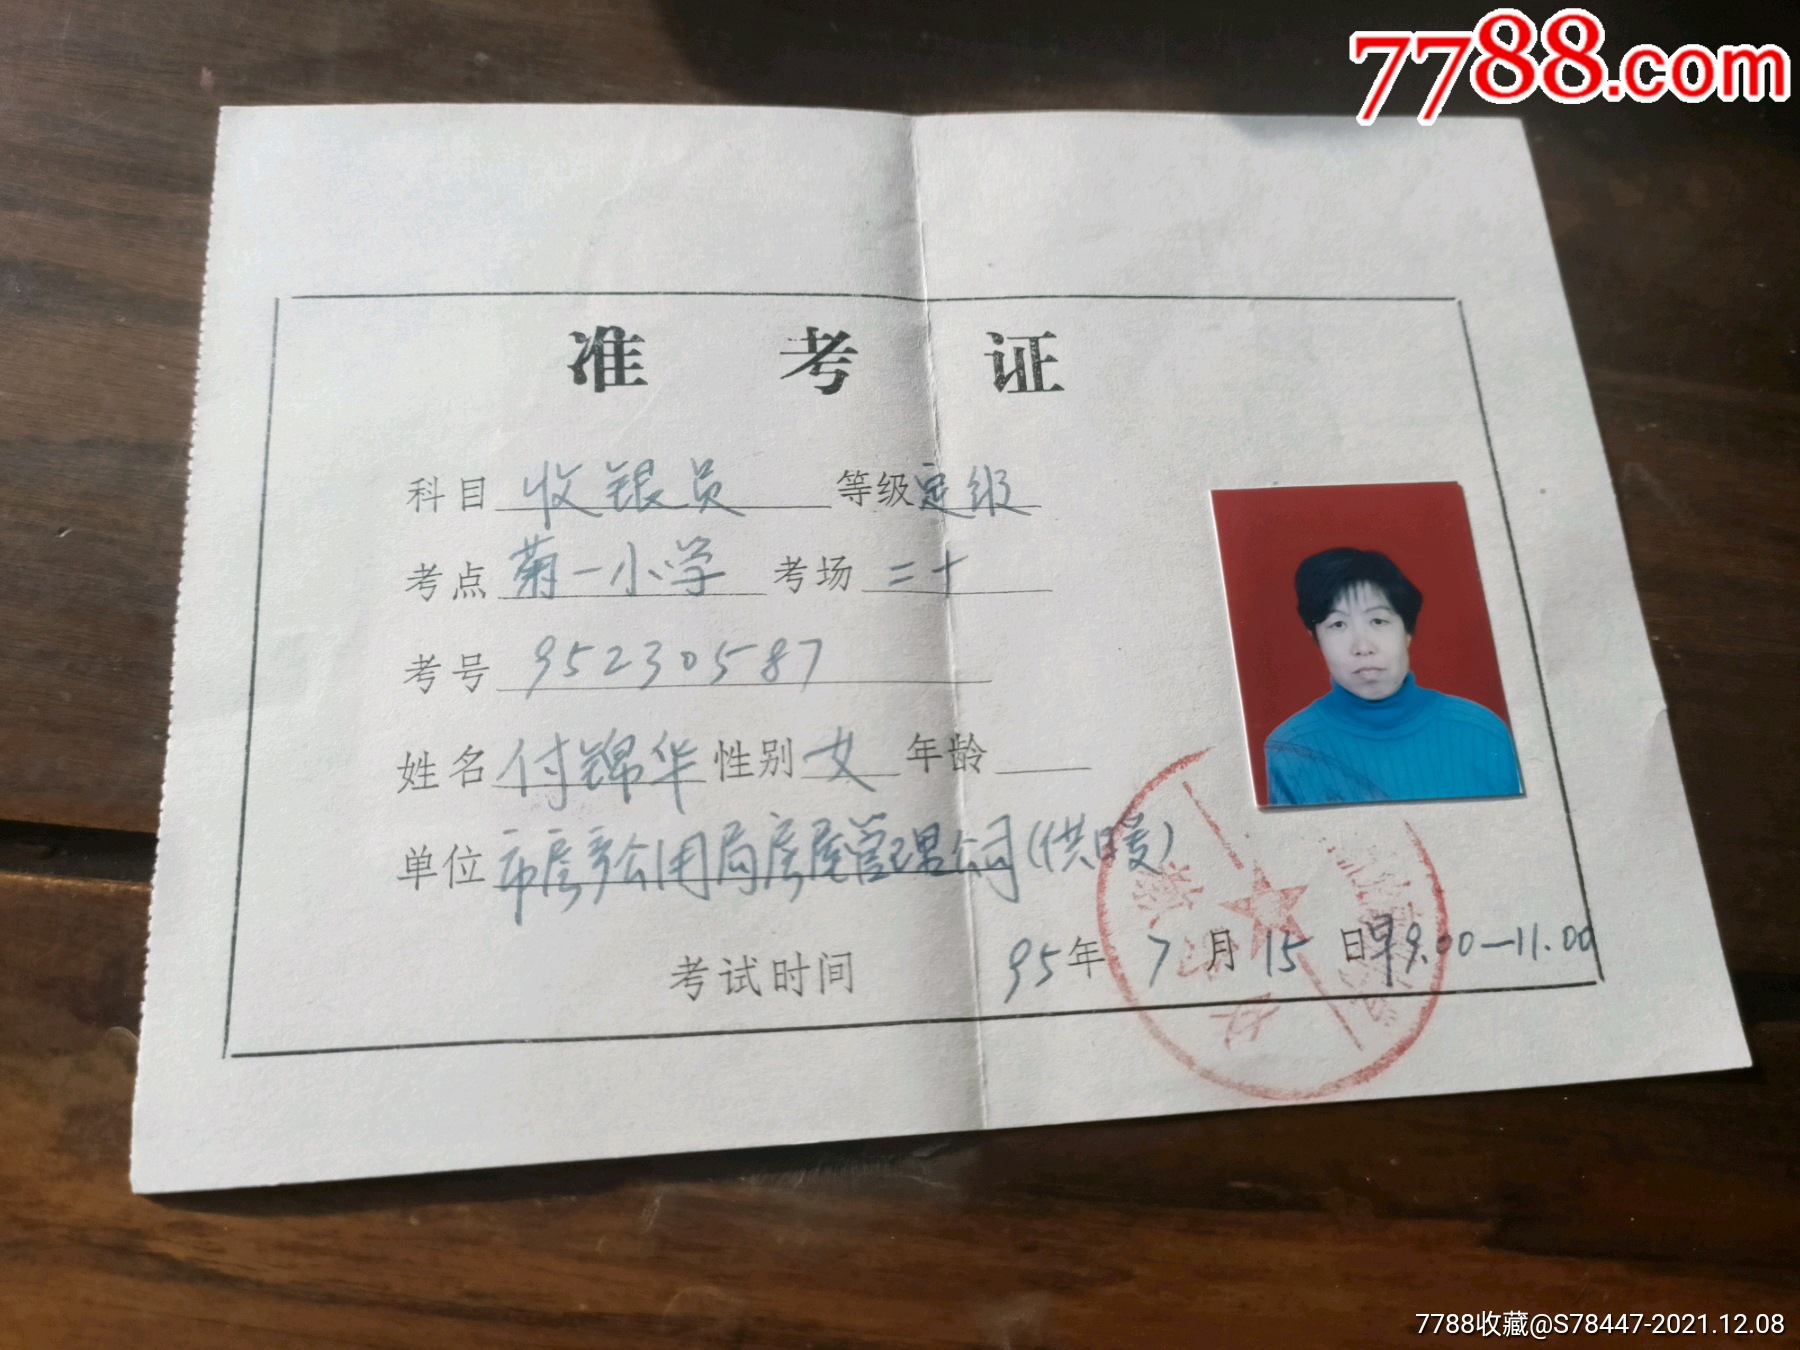 7788.com
准考证
科目 收银员 等级 定级
考点 菊一小学 考场 二十
考号 95230587
姓名 付锦华 性别 女 年龄
单位 市房产公用局房屋管理公司(供暖)
考试时间 95年7月15日早9.00—11.00
7788收藏@S78447-2021.12.08